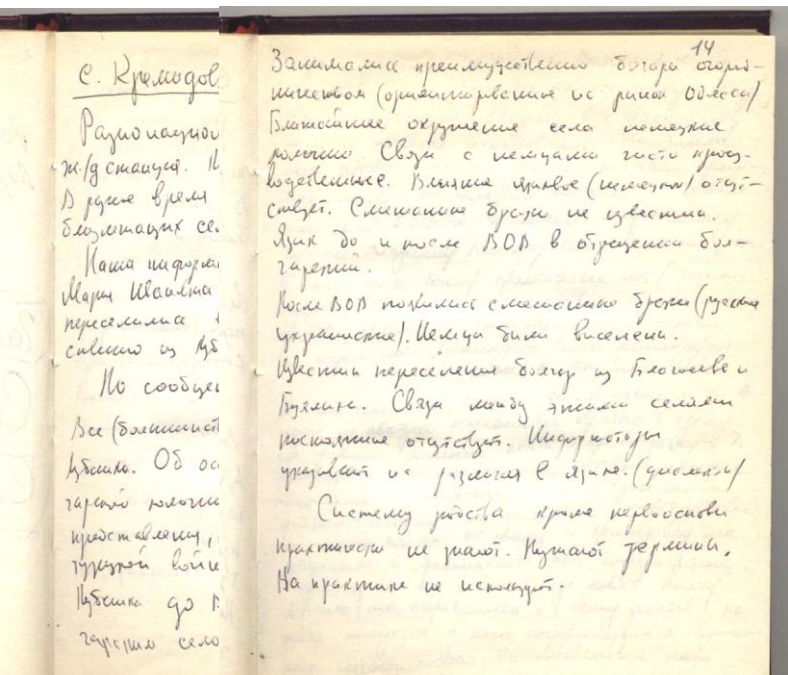 С. Кремидов
Разнонацион
ж/д станция. Н
В разное время
близлежащих се
Наша информ
Мария
переселилась
из Куб
По сообще
Все (большинст
Кубанка. Об ос
гарской колони
представлены,
турецкой войн
Кубанка до В
гарским село
14
Занимались преимущественно болгары огород-
ничеством (ориентированные на рынок Одессы)
Ближайшее окружение села немецкие
колонии. Связи с немцами чисто произ-
водственные. Влияние языковое (немецкого) отсут-
ствует. Смешанные браки не известны.
Язык до и после ВОВ в отношении бол-
гарский.
После ВОВ появились смешанные браки (русские
украинские). Немцы были выселены.
Известны переселения болгар из Благоево и
Буялык. Связи между этими селами
постоянные отсутствуют. Информаторы
указывают на различия в языке. (диалекты)
Систему родства кроме первоосновы
практически не знают. Не знают термины.
На практике не использует.